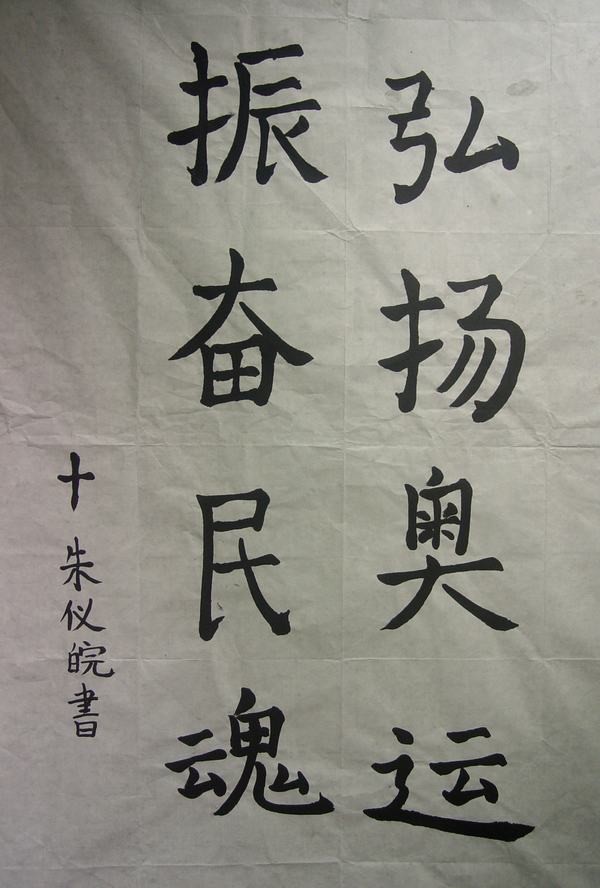 弘扬奥运
振奋民魂
十 朱仪皖書